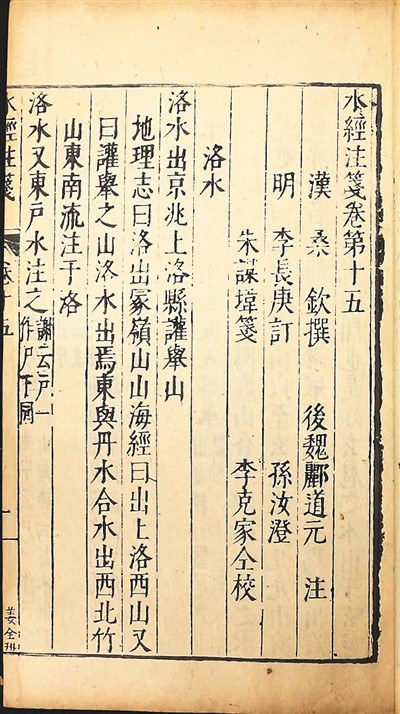 水經注箋卷第十五
漢 桑 欽撰 後魏酈道元 注
明 李長庚訂 孫汝澄
朱謀㙔箋 李克家仝校
洛水
洛水出京兆上洛縣讙舉山
地理志曰洛出冢嶺山山海經曰出上洛西山又
曰讙舉之山洛水出焉東與丹水合水出西北竹
山東南流注于洛
洛水又東戸水注之謝云戸一
作尸下同
水經注箋 卷十五 一